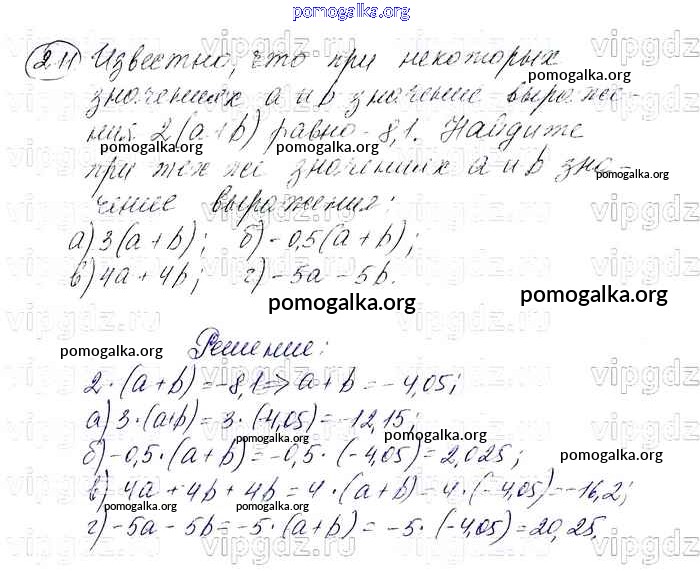 pomogalka.org
2.11 Известно, что при некоторых
pomogalka.org
значениях a и b значение выраже-
ния 2(a+b) равно -8,1. Найдите
pomogalka.org pomogalka.org
при тех же значениях a и b зна-
pomogalka.org
чение выражения:
а) 3(a+b); б) -0,5(a+b);
в) 4a+4b; г) -5a-5b.
pomogalka.org pomogalka.org
pomogalka.org Решение:
2·(a+b)=-8,1=>a+b=-4,05;
pomogalka.org
а) 3·(a+b)=3·(4,05)=-12,15;
pomogalka.org pomogalka.org
б) -0,5·(a+b)=-0,5·(-4,05)=2,025;
pomogalka.org
в) 4a+4b+4b=4·(a+b)=4·(-4,05)=-16,2;
г) -5a-5b=-5·(a+b)=-5·(-4,05)=20,25.
pomogalka.org
vipgdz.ru